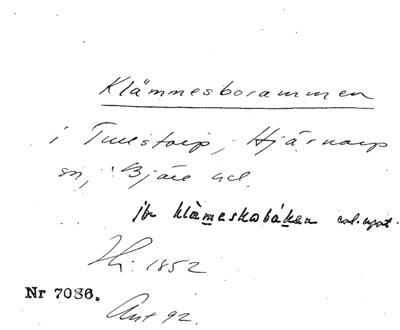 Klämmesborammen
i Tuestorp, Hjärnarp
sn, Bjäre hd.
jbr klämeskobåken
Hi. 1852
Nr 7036.
Ant 92.